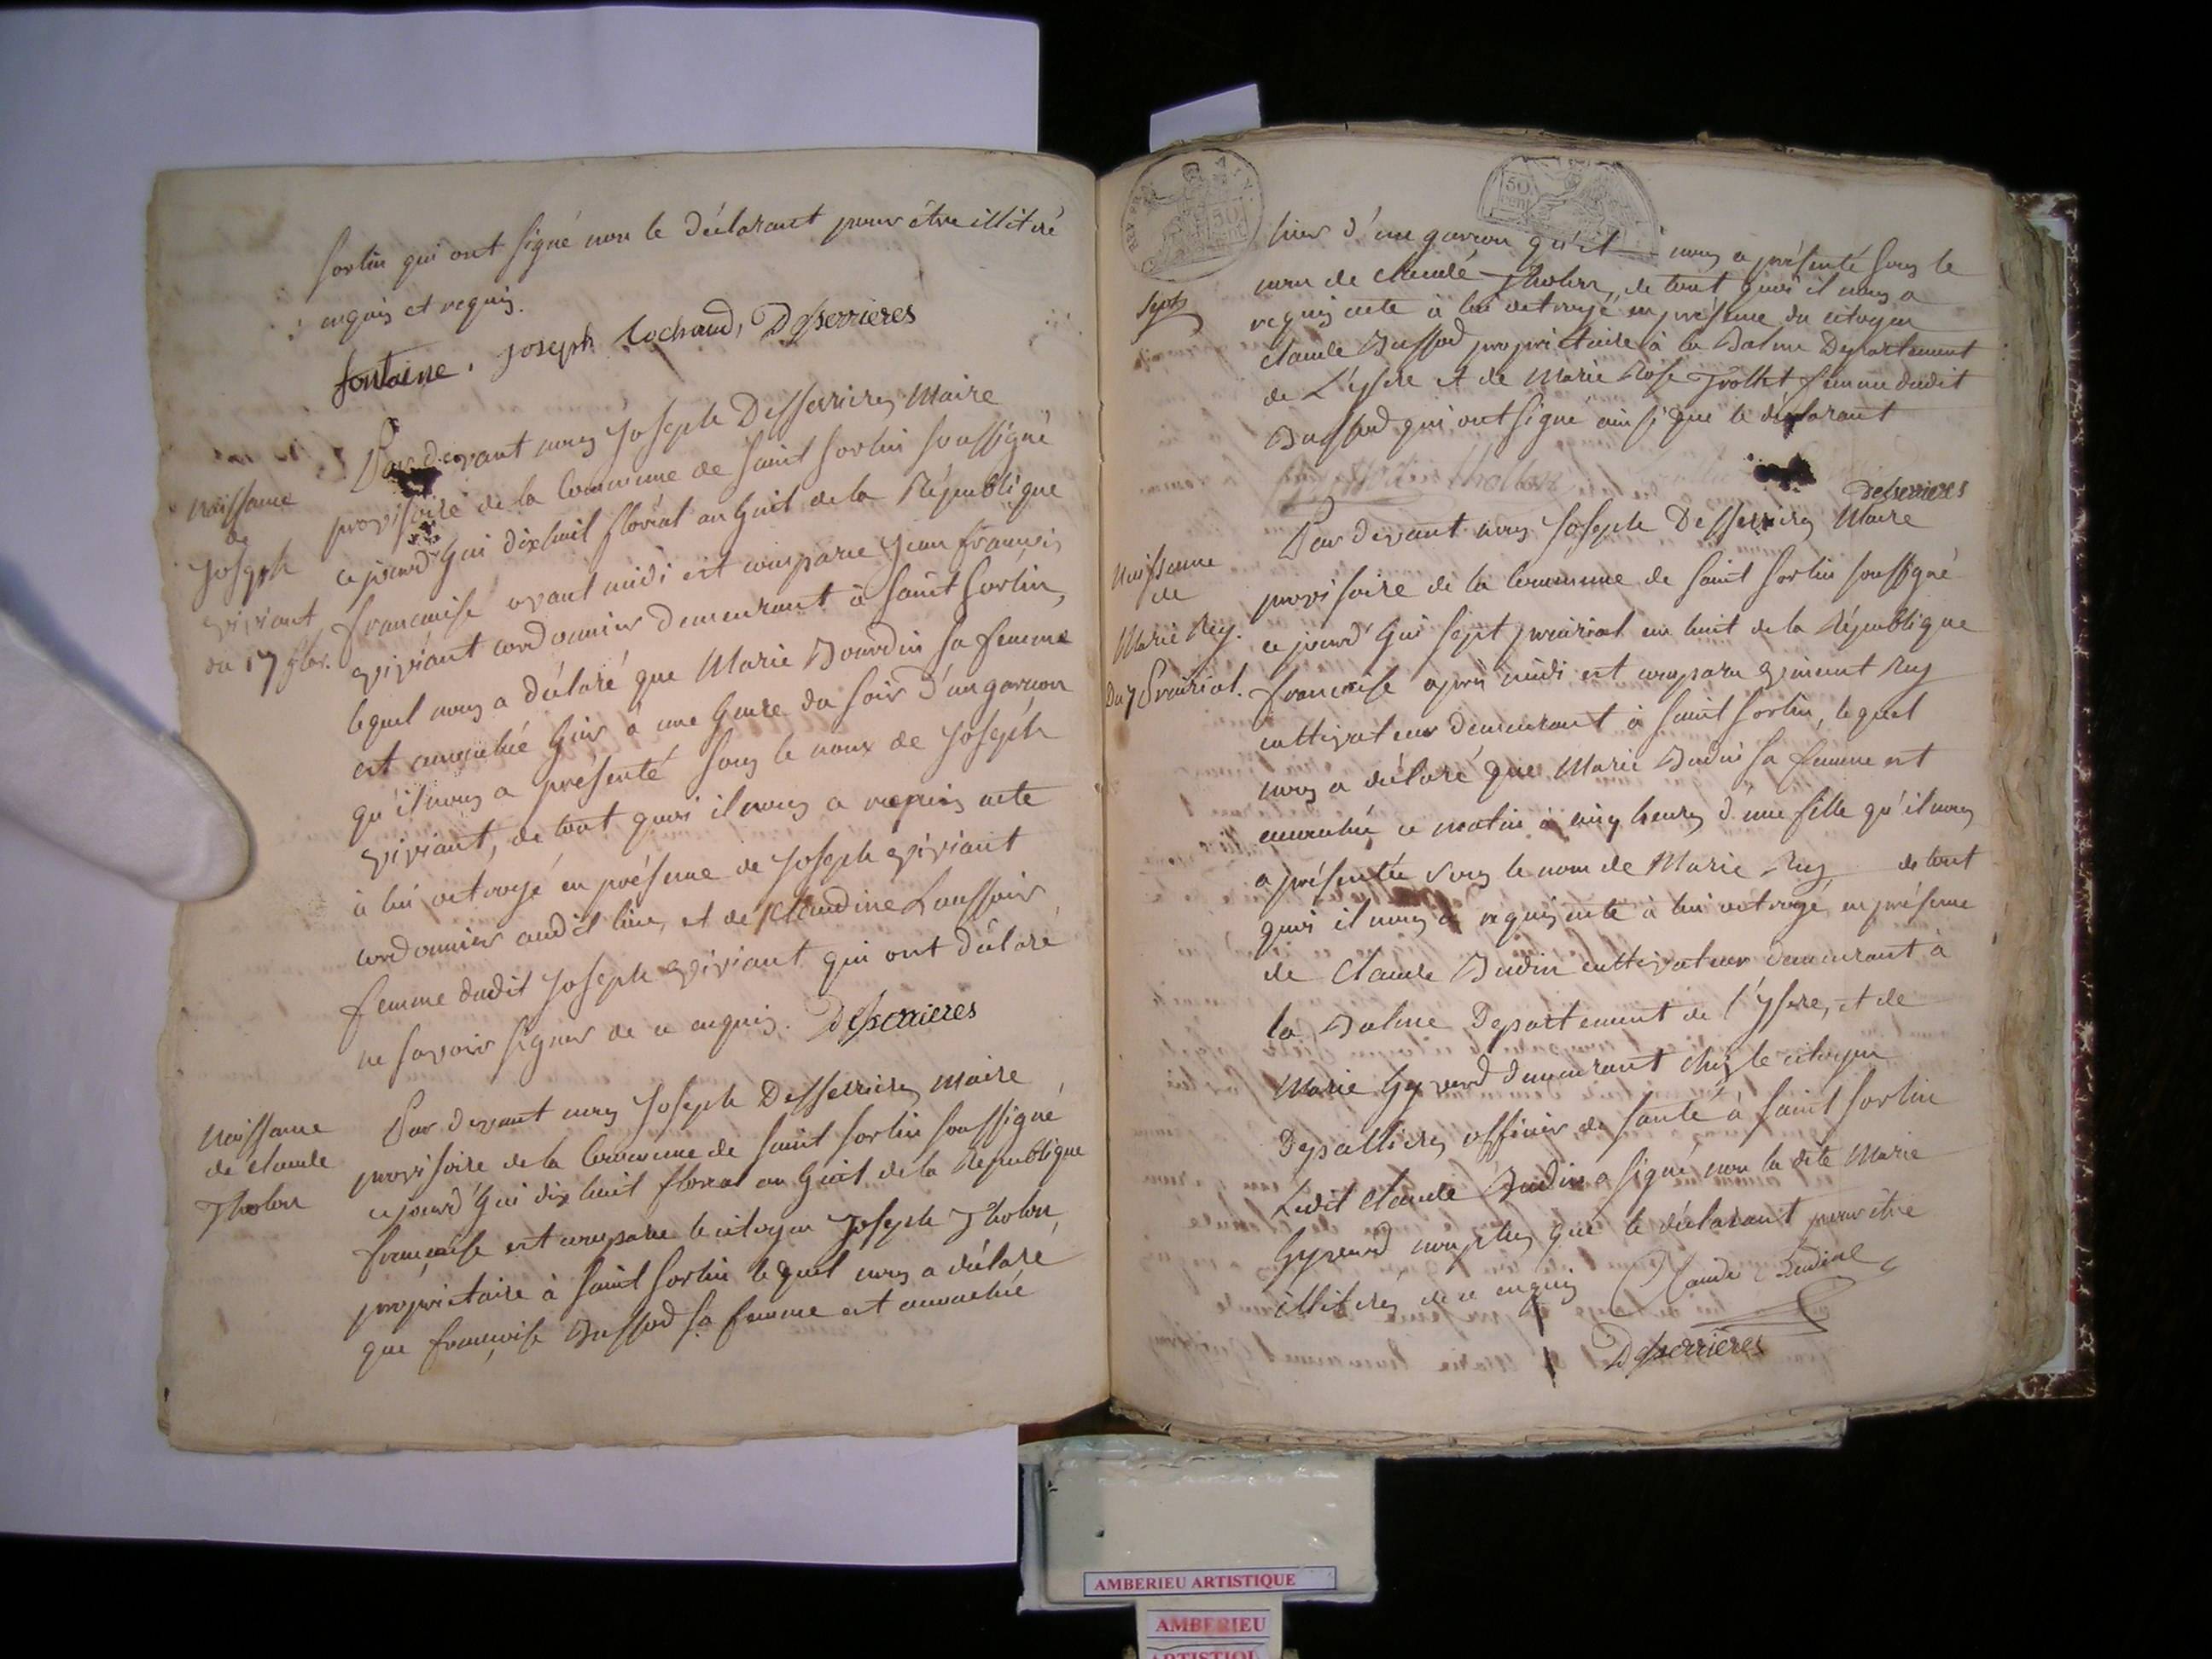 sorlin qui ont signé non le déclarant pour être illitéré
enquis et requis.
fontaine. joseph cochand, Desserrieres
Naissance
de
Joseph
viviant
du 17 flor.
Par devant nous Joseph Desserrieres Maire
provisoire de la Commune de Saint Sorlin soussigné
ce jourd'hui dix huit floréal an huit de la République
francaise avant midi est comparu Jean françois
viviant cordonnier demeurant à Saint Sorlin,
lequel nous a déclaré que Marie Bourdin sa femme
est accouchée hier à une heure du soir d'un garcon
qu'il nous a présenté sous le nom de Joseph
viviant, de tout quoi il nous a requis acte
à lui octroyé en présence de Joseph viviant
cordonnier audit lieu, et de Claudine
femme dudit Joseph viviant qui ont déclaré
ne savoir signer de ce enquis. Desserrieres
Naissance
de claude
Tholon
Par devant nous Joseph Desserrieres Maire
provisoire de la Commune de Saint Sorlin soussigné
ce jourd'hui dix huit floréal an huit de la République
française est comparu le citoyen Joseph Tholon,
propriétaire à Saint Sorlin lequel nous a déclaré
que françoise Buffod sa femme est accouchée
REP. FRA.
50
cent
50
cent
sept
hier d'un garcon qu'il nous a présenté sous le
nom de claude Tholon, de tout quoi il nous a
requis acte à lui octroyé en présence du citoyen
claude Buffod propriétaire à la Balme Departement
de L'ysere et de Marie Rose Trollet femme dudit
Buffod qui ont signé ainsi que le déclarant
tholon
Desserrieres
Naissance
de
Marie Rey.
Du 7 Prairial.
Par devant nous Joseph Desserrieres Maire
provisoire de la Commune de Saint Sorlin soussigné
ce jourd'hui sept prairial an huit de la République
francaise après midi est comparu vincent Rey
cultivateur demeurant à Saint Sorlin, lequel
nous a déclaré que Marie Budin sa femme est
accouchée ce matin à cinq heures d'une fille qu'il nous
a présentée sous le nom de Marie Rey de tout
quoi il nous a requis acte à lui octroyé en présence
de Claude Budin cultivateur demeurant à
la Balme Departement de l'ysere, et de
Marie Gyrard demeurant chez le citoyen
Depalliere officier de santé à Saint Sorlin
Ledit Claude Budin a signé, non la dite Marie
Gyrard non plus que le déclarant pour être
illitérés de ce enquis Claude Budin
Desserrieres
AMBERIEU ARTISTIQUE
AMBERIEU
ARTISTIQUE